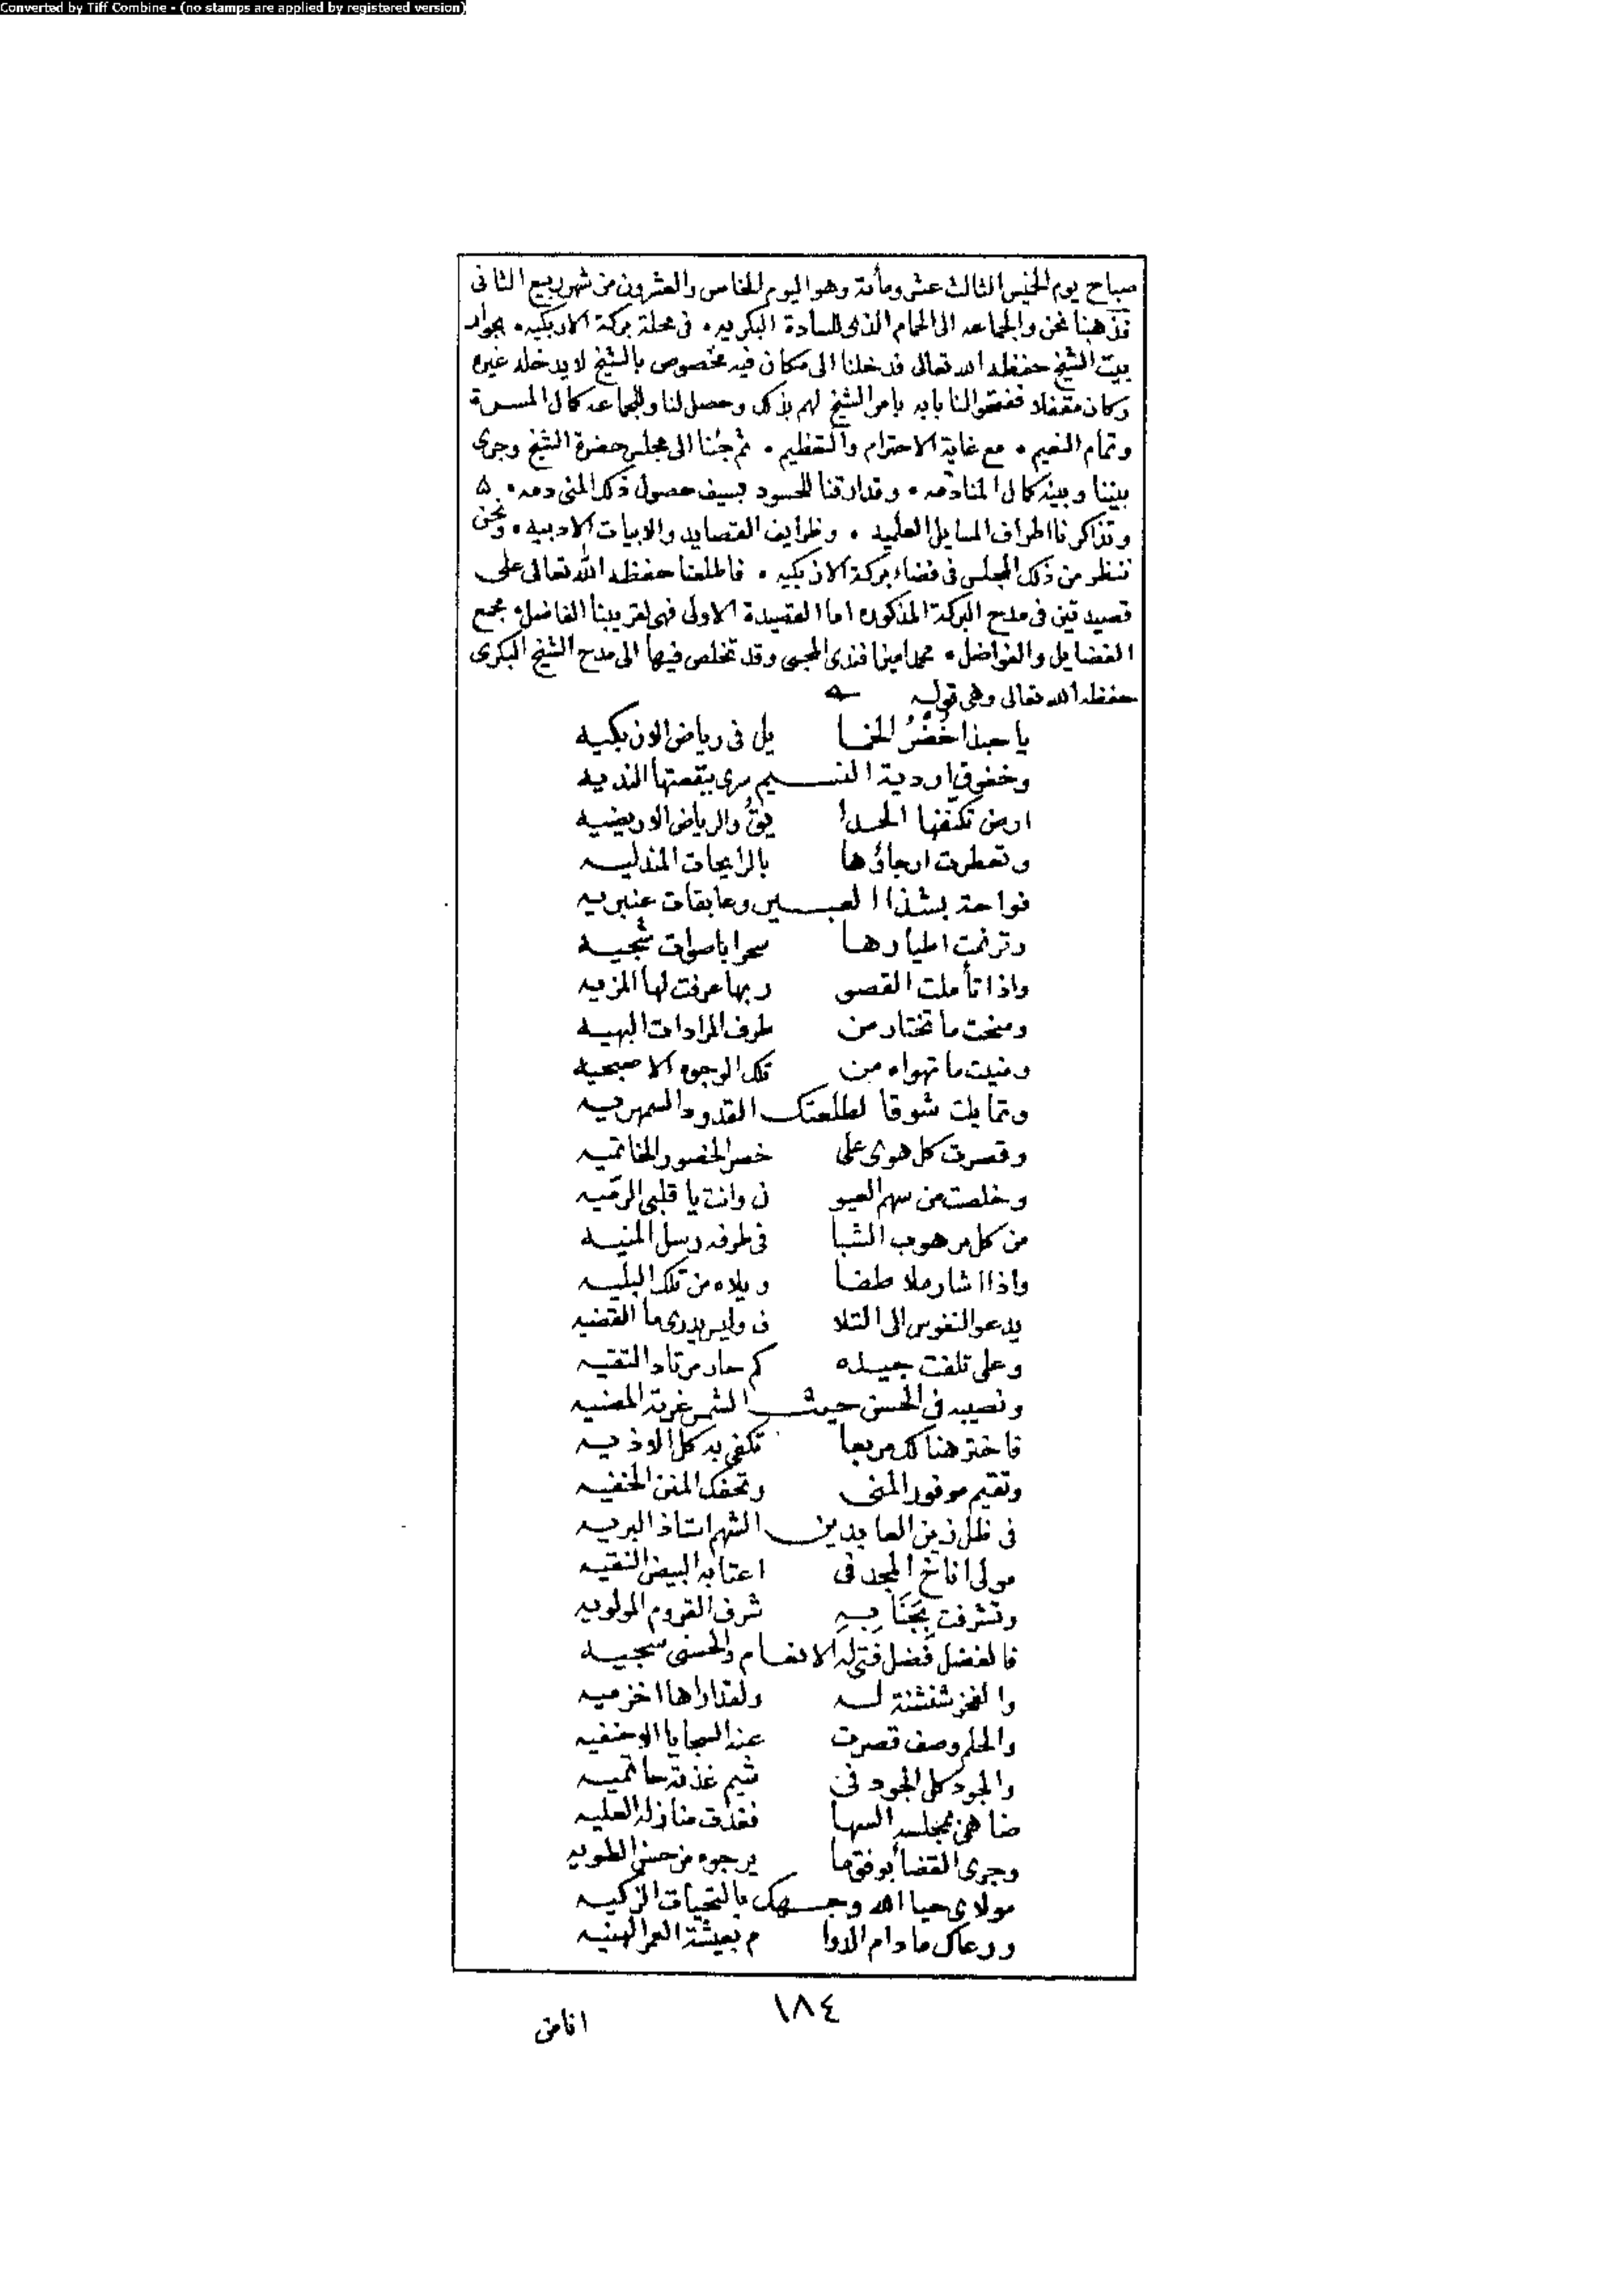 Converted by Tiff Combine - (no stamps are applied by registered version)
صباح يوم الخميس الثالث عشر ومأتة وهو اليوم الخامس والعشرون من شهر ربيع الثانى
فذهبنا نحن والجماعه الى الحمام الذى للسادة البكريه • فى محلة بركة الازبكيه • بجوار
بيت الشيخ حفظه الله تعالى فدخلنا الى مكان فيه مخصوص بالشيخ لا يدخله غيره
وكان مقفلا ففتحوا لنا بابه بامر الشيخ لهم بذلك وحصل لنا وللجماعه كمال المسرة
وتمام النعيم • مع غاية الاحترام والتعظيم • ثم جئنا الى مجلس حضرة الشيخ وجرى
بيننا وبينه كمال المنادمه • وقد ارتنا للحسود بسيف حصول ذلك المنى دمه •
وتذاكرنا اطراف المسايل العلميه • وظرايف القصايد والابيات الادبيه • ونحن
ننظر من ذلك المجلس فى فضاء بركة الازبكيه • فاطلعنا حفظه الله تعالى على
قصيدتين فى مدح البركة المذكوره اما القصيدة الاولى فهى لقريبنا الفاضل • مجمع
الفضايل والفواضل • محمد امين افندى المحبى وقد تخلص فيها الى مدح الشيخ البكرى
حفظه الله تعالى وهى قوله
يا حبذا خُضْرُ الخما يل فى رياض الازبكيه
وخفوق اردية النسيم سرى ببقعتها النديه
ارض تكنّفها الحدا يقُ والرياض الاريضيه
وتعطرت ارجاؤها بالرايحات المندليه
فواحة بشذا العبير وعابقات عنبريه
وترنمت اطيارها سحرا باصوات شجيه
واذا تأملت القصو ر بها عرفت لها المزيه
ومنحت ما تختار من طرف المرادات البهيه
ومنيت ما تهواه من تلك الوجوه الاصبحيه
وتمايلت شوقا لطلعتك القدود السمهريه
وقصرت كل هوى على خصر الخصور الخاتميه
وخلصت من سهم العيو ن وانت يا قلبى الرميّه
من كل مرهوب الشبا فى طرفه رسل المنيه
واذا اشار ملاطفا ويلاه من تلك البليه
يدعو النفوس الى التلا ف وليس يدرى ما القضيه
وعلى تلفت جيده كم حار مرتاد التقيه
ونصيبه فى الحسن حيث الشمس غرته المضيه
فاختر هنالك مربعا تكفى به كل الاذيه
وتقيم موفور المنى وتحفك المنن الخفيه
فى ظل زين العابدين الشهم استاذ البريه
مولى اناخ المجد فى اعتابه البيض النقيه
وتشرفت بِجَنَابِهِ شرف القروم المولويه
فالفضل فضل فتى له الانعام والحسنى سجيه
والفخر شنشنة له ولقد اراها اخزميه
والحلم وصف قصرت عنه السجايا الاحنفيه
والجود كل الجود فى شيم غذته حاتميه
ضاهى بمجلسه السها فغدت منازله العليه
وجرى القضأ بوفق ما يرجوه من حسن الطويه
مولاى حيا الله وجهك بالتحيات الزكيه
ورعاك ما دام الدوا م بعيشة العمر الهنيه
١٨٤